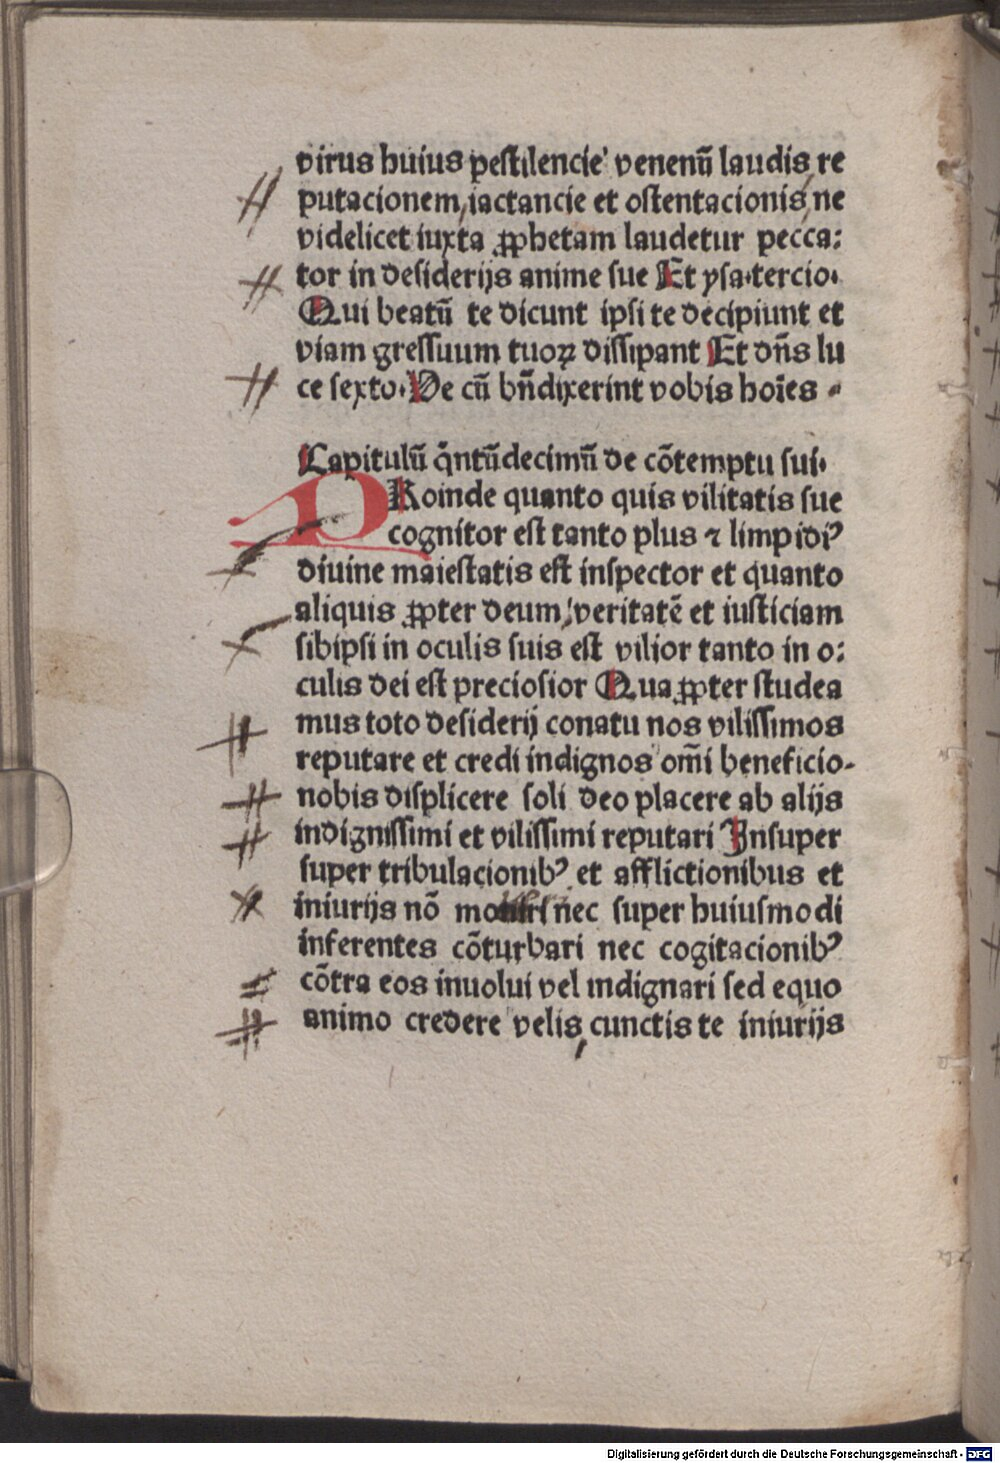 virus huius pestilencie venenū laudis re
putacionem, iactancie et ostentacionis, ne
videlicet iuxta ꝓphetam laudetur pecca:
tor in desiderijs anime sue Et ysa·tercio·
Qui beatū te dicunt ipsi te decipiunt et
viam gressuum tuoꝝ dissipant Et dn̄s lu
ce sexto· Ve cū bn̄dixerint vobis hoīes ·
Capitulū q̄ntūdecimū de cōtemptu sui·
PRoinde quanto quis vilitatis sue
cognitor est tanto plus ⁊ limpidiꝰ
diuine maiestatis est inspector et quanto
aliquis ꝓpter deum, veritatē et iusticiam
sibipsi in oculis suis est vilior tanto in o:
culis dei est preciosior Qua ꝓpter studea
mus toto desiderij conatu nos vilissimos
reputare et credi indignos om̄i beneficio·
nobis displicere soli deo placere ab alijs
indignissimi et vilissimi reputari Insuper
super tribulacionibꝰ et afflictionibus et
iniurijs nō nec super huiusmodi
inferentes cōturbari nec cogitacionibꝰ
cōtra eos inuolui vel indignari sed equo
animo credere velis, cunctis te iniurijs
Digitalisierung gefördert durch die Deutsche Forschungsgemeinschaft - DFG